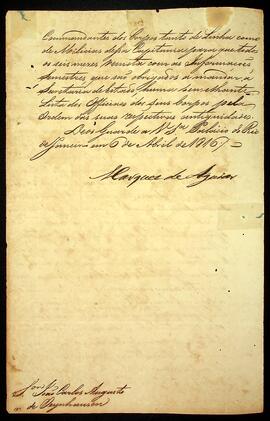 Commandantes dos Corpos tanto de Linha como
de Milicias dessa Capitania para que todos
os seis mezes remettão com as Informações
Semestres que são obrigados a mandar a
Secretaria de Estado, huma Semelhante
Lista dos Officiaes dos seus Corpos pela
ordem das suas respectivas antiguidades.
Deos Guarde a V. S.ª Palacio do Rio
de Janeiro em 6 de Abril de 1816
Marquez de Aguiar
Snr. João Carlos Augusto
de Oeynhausen